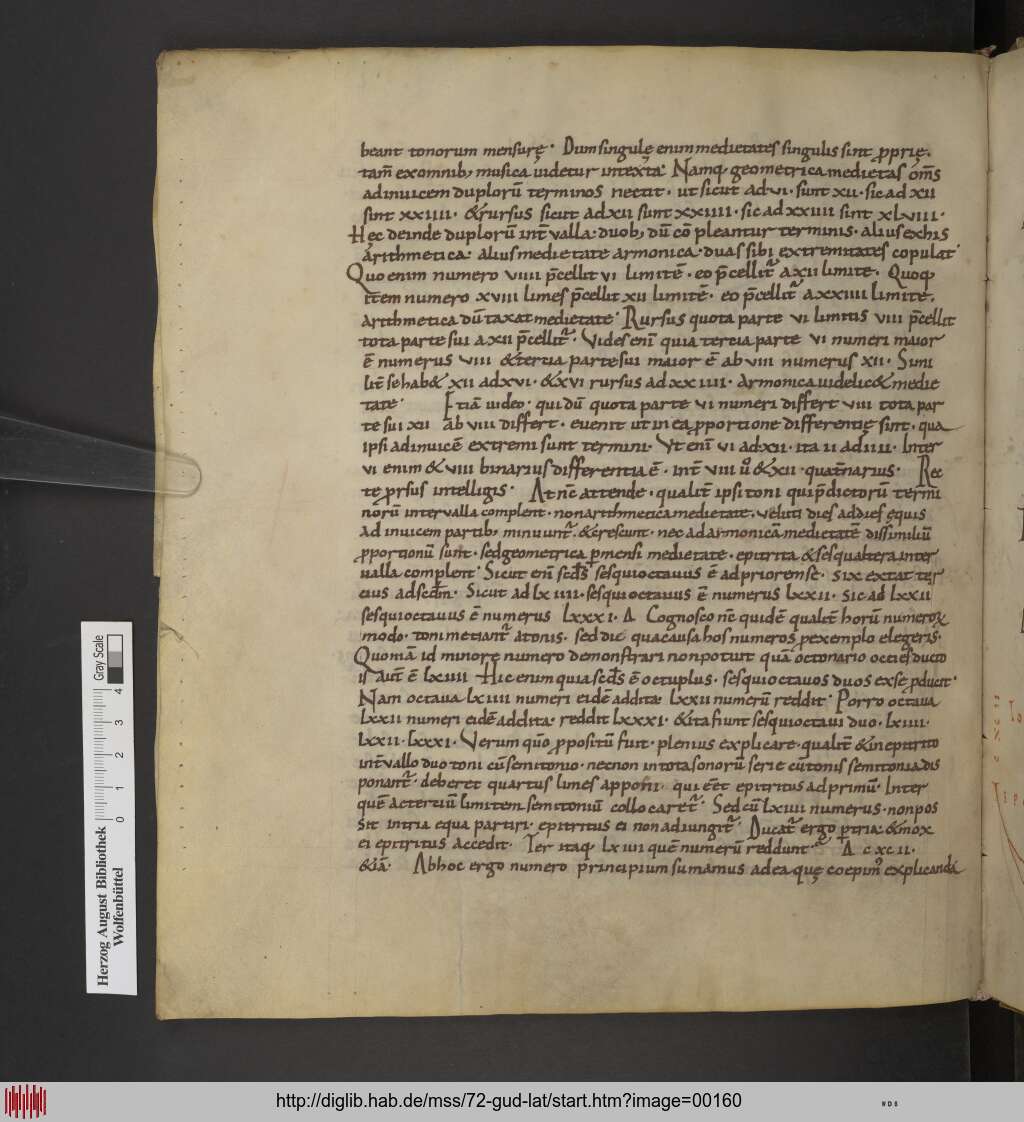 beant tonorum mensurę. Dum singulę enim medietates singulis sint ꝓprię.
tam̄ ex omnib; musica uidetur intexta. Namq; geometrica medietas om̄s
ad inuicem duplorū terminos nectit. ut sicut ad vi. sunt xii. sic ad xii
sint xxiiii. & rursus sicut ad xii sunt xxiiii. sic ad xxiiii sint xlviii.
Hec deinde duplorū int̄ualla. duob; dū cōpleantur terminis. alius ex his
arithmetica. alius medietate armonica. duas sibi extremitates copulat.
Quo enim numero viiii p̄cellit vi limitē. eo p̄cellit᷑ a xii limite. Quoq;
itēm numero xviii limes p̄cellit xii limitē. eo p̄cellit᷑ a xxiiii limite.
Arithmetica dūtaxat medietate. Rursus quota parte vi limitis viii p̄cellit
tota parte sui a xii p̄cellit᷑. Vides enī quia tercia parte vi numeri maior
ē numerus viii & tertia parte sui maior ē ab viii numerus xii. Simi
lit̄ se hab& xii ad xvi. & xvi rursus ad xxiiii. armonica uidelic& medie
tate. Etiā uideo. qui dū quota parte vi numeri differt viii tota par
te sui xii ab viii differt. euenit ut in ea ꝓportione differentię sint. qua
ipsi ad inuicē extremi sunt termini. Vt enī vi ad xii. ita ii ad iiii. Inter
vi enim & viii binarius differentia ē. int̄ viii ů & xii. quat̄narius. Rec
te ꝓrsus intelligis. At nc̄ attende. qualit̄ ipsi toni qui p̄dictorū termi
norū interualla complent. non arithmetica medietate. veluti dies ad dies ęquis
ad inuicem partib; minuunt᷑. & crescunt. nec ad armonicā medietatē dissimiliū
ꝓportionū sunt. sed geometrica ꝑmensi medietate. epitrita & sesqualtera inter
ualla complent. Sicut enī scd̄s sesquioctauus ē ad priorem se. sic extat ter
cius ad scd̄m. Sicut ad lxiiii. sesquioctauus ē numerus lxxii. sic ad lxxii
sesquioctauus ē numerus lxxxi. Δ Cognosco nc̄ quidē qualit̄ horū numeroꝝ
modo. toni metiant᷑ a tonis. sed dic qua causa hos numeros ꝑ exemplo elegeris.
Quoniā id minore numero demonstrari non potuit quā octonario octies ducto
is aut̄ ē lxiiii Hic enim quia scd̄s ē octuplus. sesquioctauos duos ex se ꝓducit.
Nam octaua lxiiii numeri eidē addita. lxxii numerū reddit. Porro octaua
lxxii numeri eidē addita. reddit lxxxi. & ita fiunt sesquioctaui duo. lxiiii.
lxxii. lxxxi. Verum qūo ꝓpositū fuit. plenius explicare. qualit̄ & in epitrito
int̄uallo duo toni cū semitonio. necnon in tota sonorū serie cū tonis semitonia dis
ponant᷑. deberet quartus limes apponi. qui eēt epitritus ad primū. Inter
quē ac tertiū limitem semitoniū collocaret᷑. Sed cū lxiiii numerus. non pos
sit in tria equa partiri. epitritus ei non adiungit᷑. Ducat᷑ ergo ꝑ tria. & mox
ei epitritus accedit. Ter itaq; lxiiii quē numerū reddunt᷑ Δ cxcii.
&iā. Ab hoc ergo numero principium sumamus ad ea quę coepim᷒ explicanda
Herzog August Bibliothek
Wolfenbüttel
0 1 2 3 4
Gray Scale
http://diglib.hab.de/mss/72-gud-lat/start.htm?image=00160